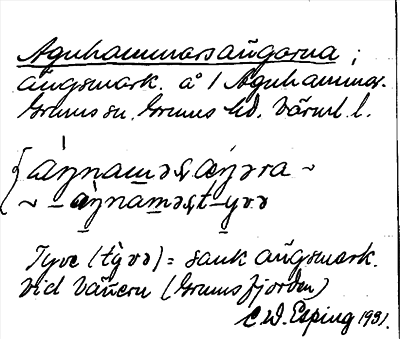 Agnhammarsängarna ;
ängsmark. å 1 Agnhammar.
Grums sn. Grums hd. Värml. l.
áŋnaməʂ æŋəra ~
~ – àŋnaməʂt–yvə
Tyve (tỳvə) = sank ängsmark.
vid Vänern (Grumsfjorden)
C.W. Esping 1931.